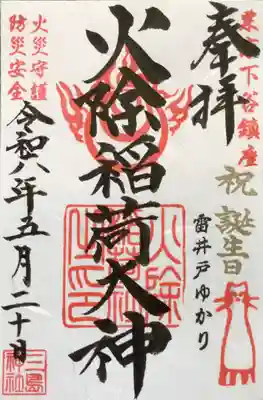 東京下谷鎮座
奉拝
祝誕生日
雷井戸ゆかり
火除稲荷大神
火除稲荷神社之印
火災守護
防災安全
令和八年五月二十日
三島神社